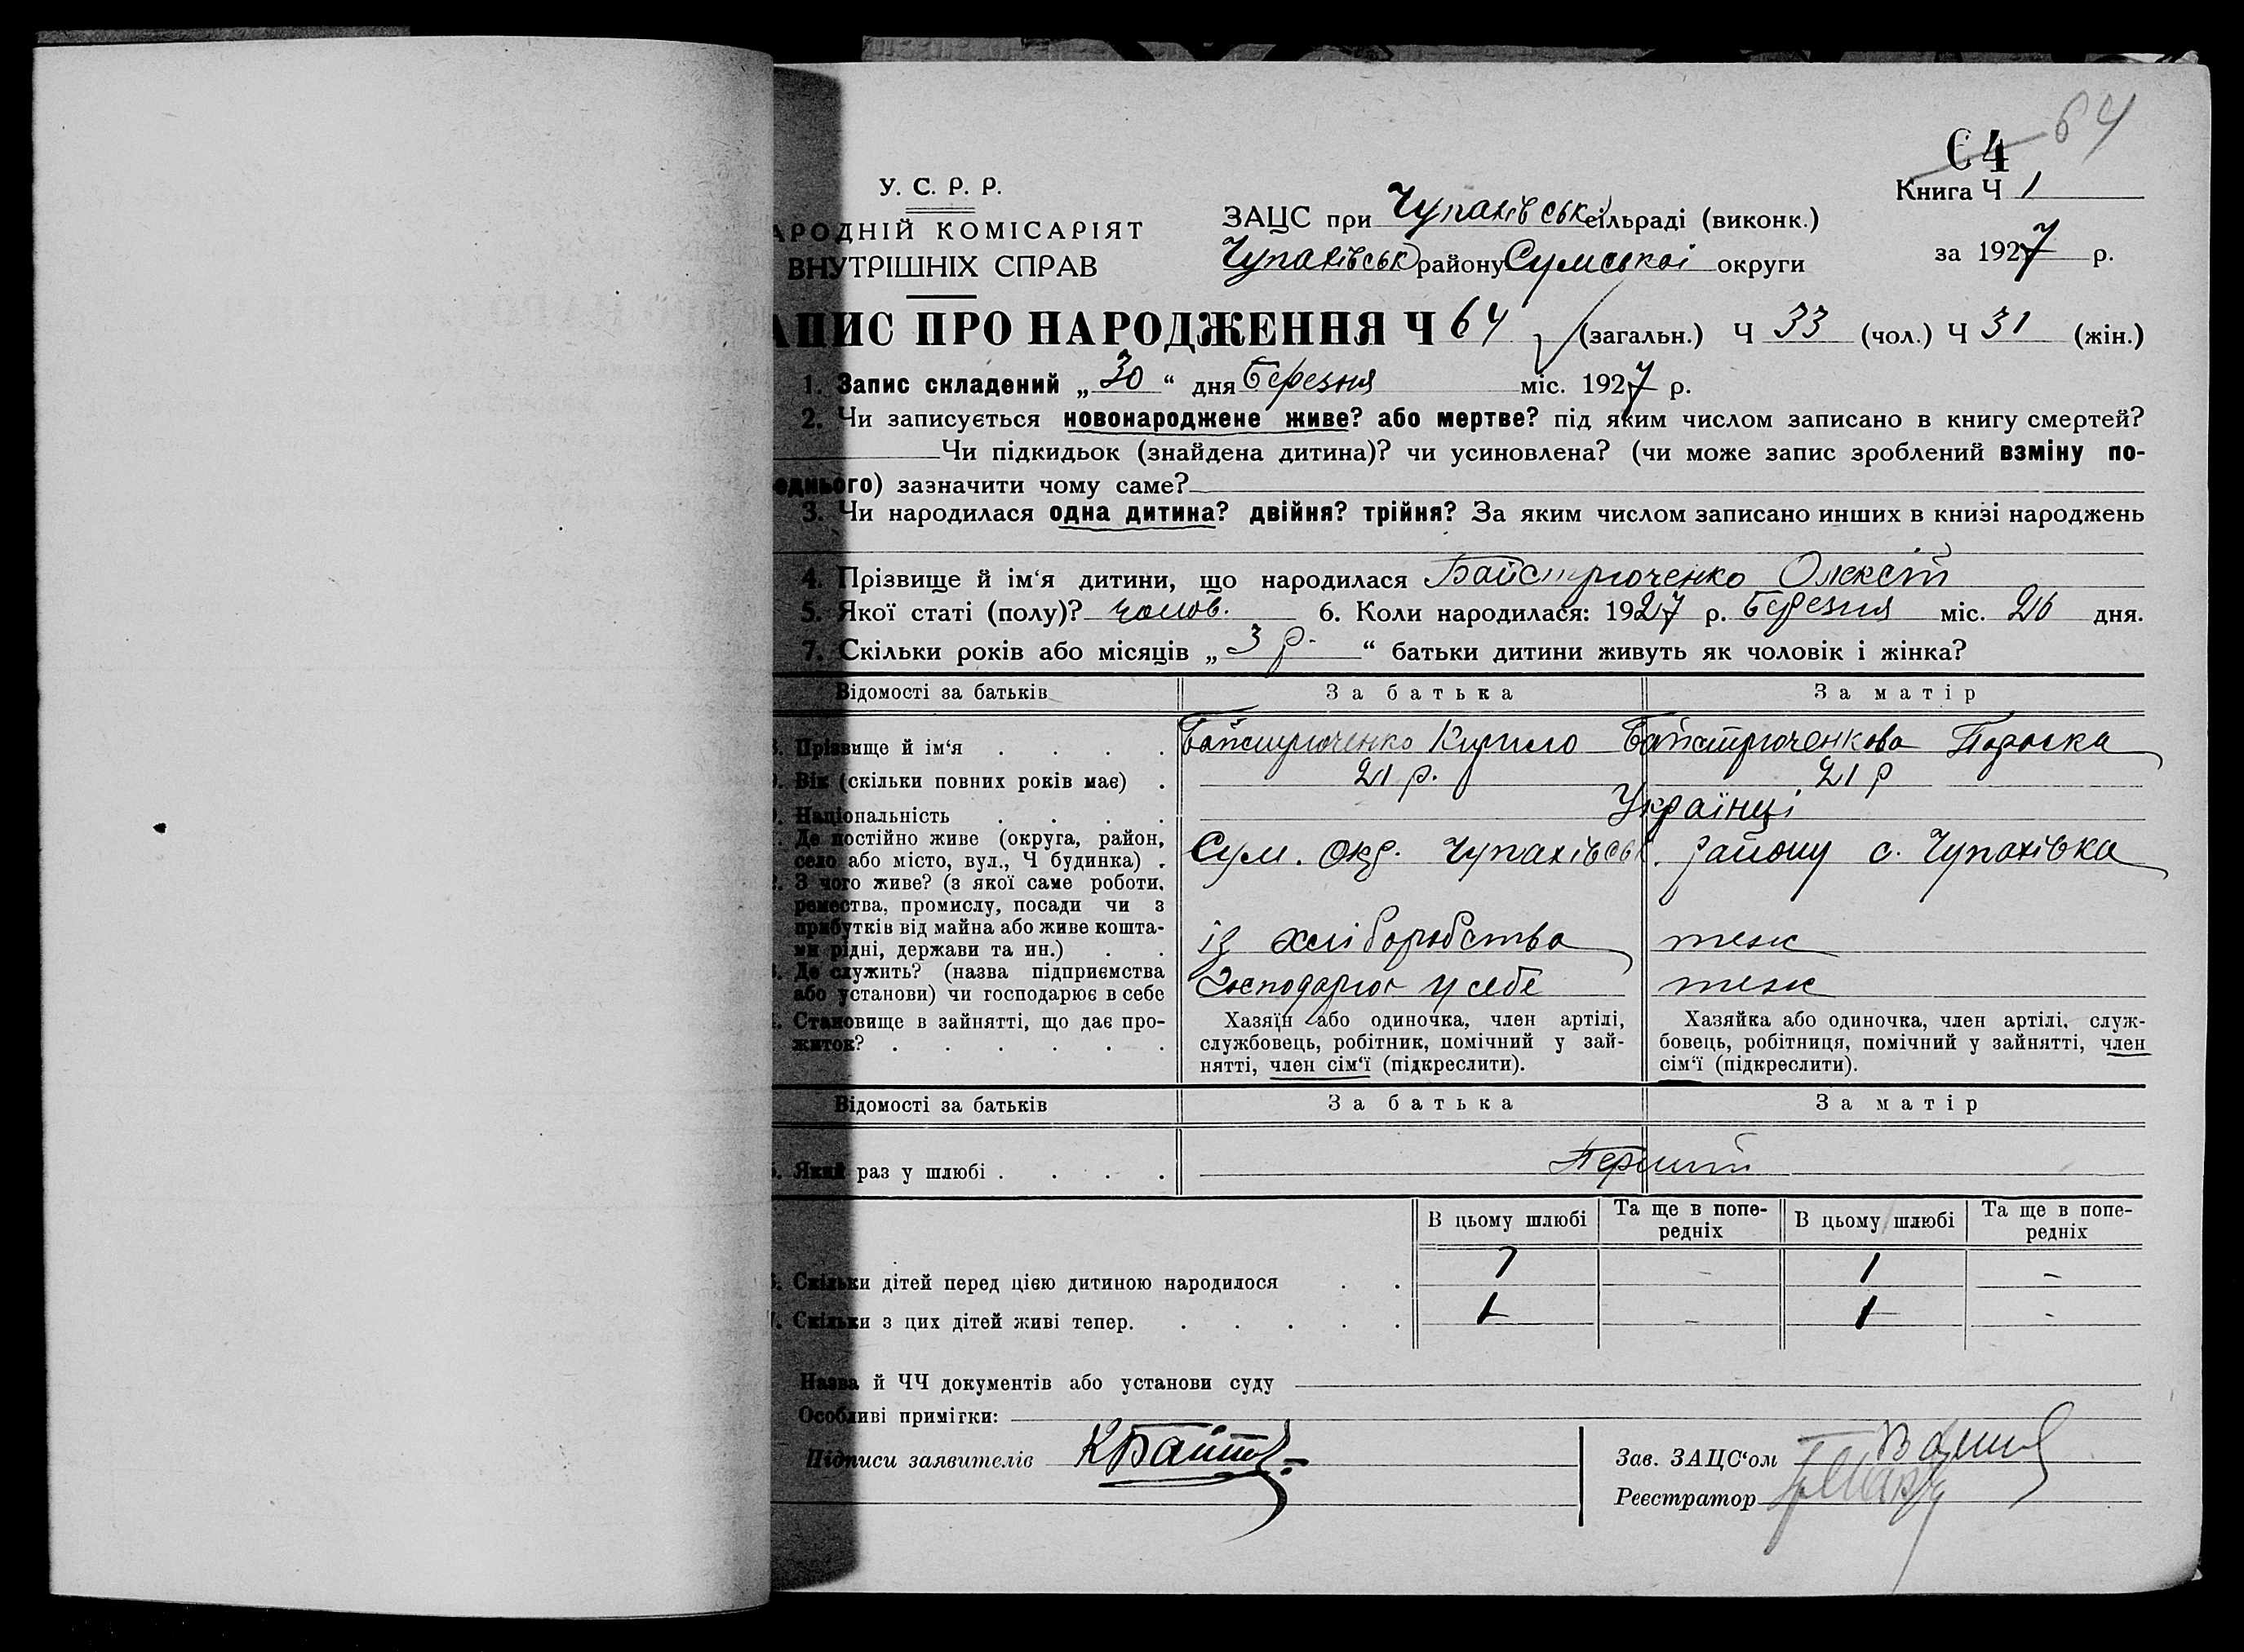 64
64
Книга Ч 1
У. С. Р. Р.
АРОДНІЙ КОМІСАРІЯТ
ВНУТРІШНІХ СПРАВ
ЗАЦС при Чупахівськ сільраді (виконк.)
Чупахівськ району Сумської округи
за 1927 р.
АПИС ПРО НАРОДЖЕННЯ Ч 64 (загальн.) Ч 33 (чол.) Ч 31 (жін.)
1. Запис складений „30“ дня Березня міс. 1927 р.
2. Чи записується новонароджене живе? або мертве? під яким числом записано в книгу смертей?
Чи підкидьок (знайдена дитина)? чи усиновлена? (чи може запис зроблений взміну по-
еднього) зазначити чому саме?
3. Чи народилася одна дитина? двійня? трійня? За яким числом записано инших в книзі народжень
4. Прізвище й ім‘я дитини, що народилася Байстрюченко Олексій
5. Якої статі (полу)? чолов. 6. Коли народилася: 1927 р. Березня міс. 26 дня.
7. Скільки років або місяців „3 р.“ батьки дитини живуть як чоловік і жінка?
Відомості за батьків За батька За матір
8. Прізвище й ім‘я . . . . Байстрюченко Кирило Байстрюченкова Параска
9. Вік (скільки повних років має) . 21 р. 21 р
Національність . . . . Українці
Де постійно живе (округа, район,
село або місто, вул., Ч будинка) . Сум. Окр. Чупахівськ. району с. Чупахівка
2. З чого живе? (з якої саме роботи,
ремества, промислу, посади чи з
прибутків від майна або живе кошта-
ми рідні, держави та ин.) . . із хліборобства теж
3. Де служить? (назва підприємства
або установи) чи господарює в себе Господарює у себе теж
Становище в зайнятті, що дає про-
житок? . . . . . .
Хазяїн або одиночка, член артілі,
службовець, робітник, помічний у зай-
нятті, член сім‘ї (підкреслити).
Хазяйка або одиночка, член артілі, служ-
бовець, робітниця, помічний у зайнятті, член
сім‘ї (підкреслити).
Відомості за батьків За батька За матір
Який раз у шлюбі . . . . Перший
В цьому шлюбі Та ще в попе-редніх В цьому шлюбі Та ще в попе-редніх
Скільки дітей перед цією дитиною народилося . . 1 - 1 -
Скільки з цих дітей живі тепер. . . . . . 1 - 1 -
Назва й ЧЧ документів або установи суду
Особливі примітки:
Підписи заявителів
Зав. ЗАЦС‘ом
Реєстратор